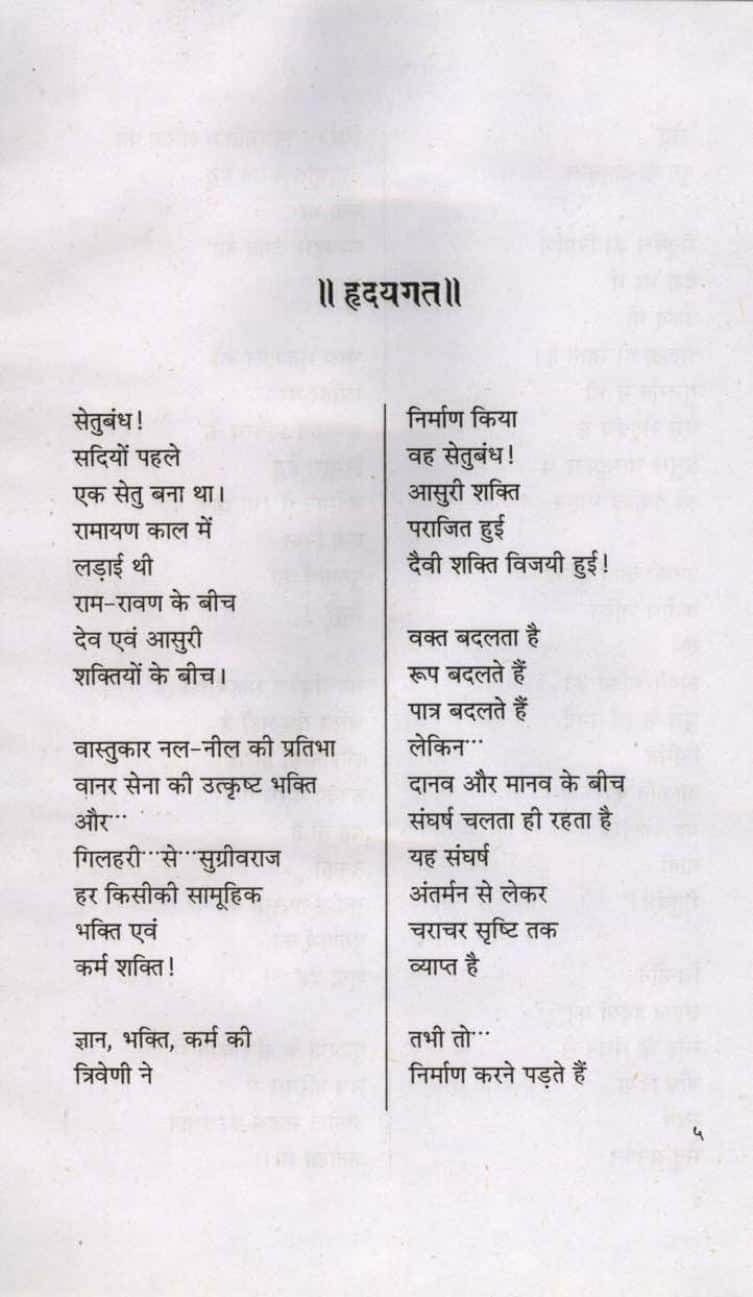 ॥ हृदयगत॥
सेतुबंध!
सदियों पहले
एक सेतु बना था।
रामायण काल में
लड़ाई थी
राम-रावण के बीच
देव एवं आसुरी
शक्तियों के बीच।
वास्तुकार नल-नील की प्रतिभा
वानर सेना की उत्कृष्ट भक्ति
और···
गिलहरी···से···सुग्रीवराज
हर किसीकी सामूहिक
भक्ति एवं
कर्म शक्ति!
ज्ञान, भक्ति, कर्म की
त्रिवेणी ने
निर्माण किया
वह सेतुबंध!
आसुरी शक्ति
पराजित हुई
दैवी शक्ति विजयी हुई!
वक्त बदलता है
रूप बदलते हैं
पात्र बदलते हैं
लेकिन···
दानव और मानव के बीच
संघर्ष चलता ही रहता है
यह संघर्ष
अंतर्मन से लेकर
चराचर सृष्टि तक
व्याप्त है
तभी तो···
निर्माण करने पड़ते हैं
५